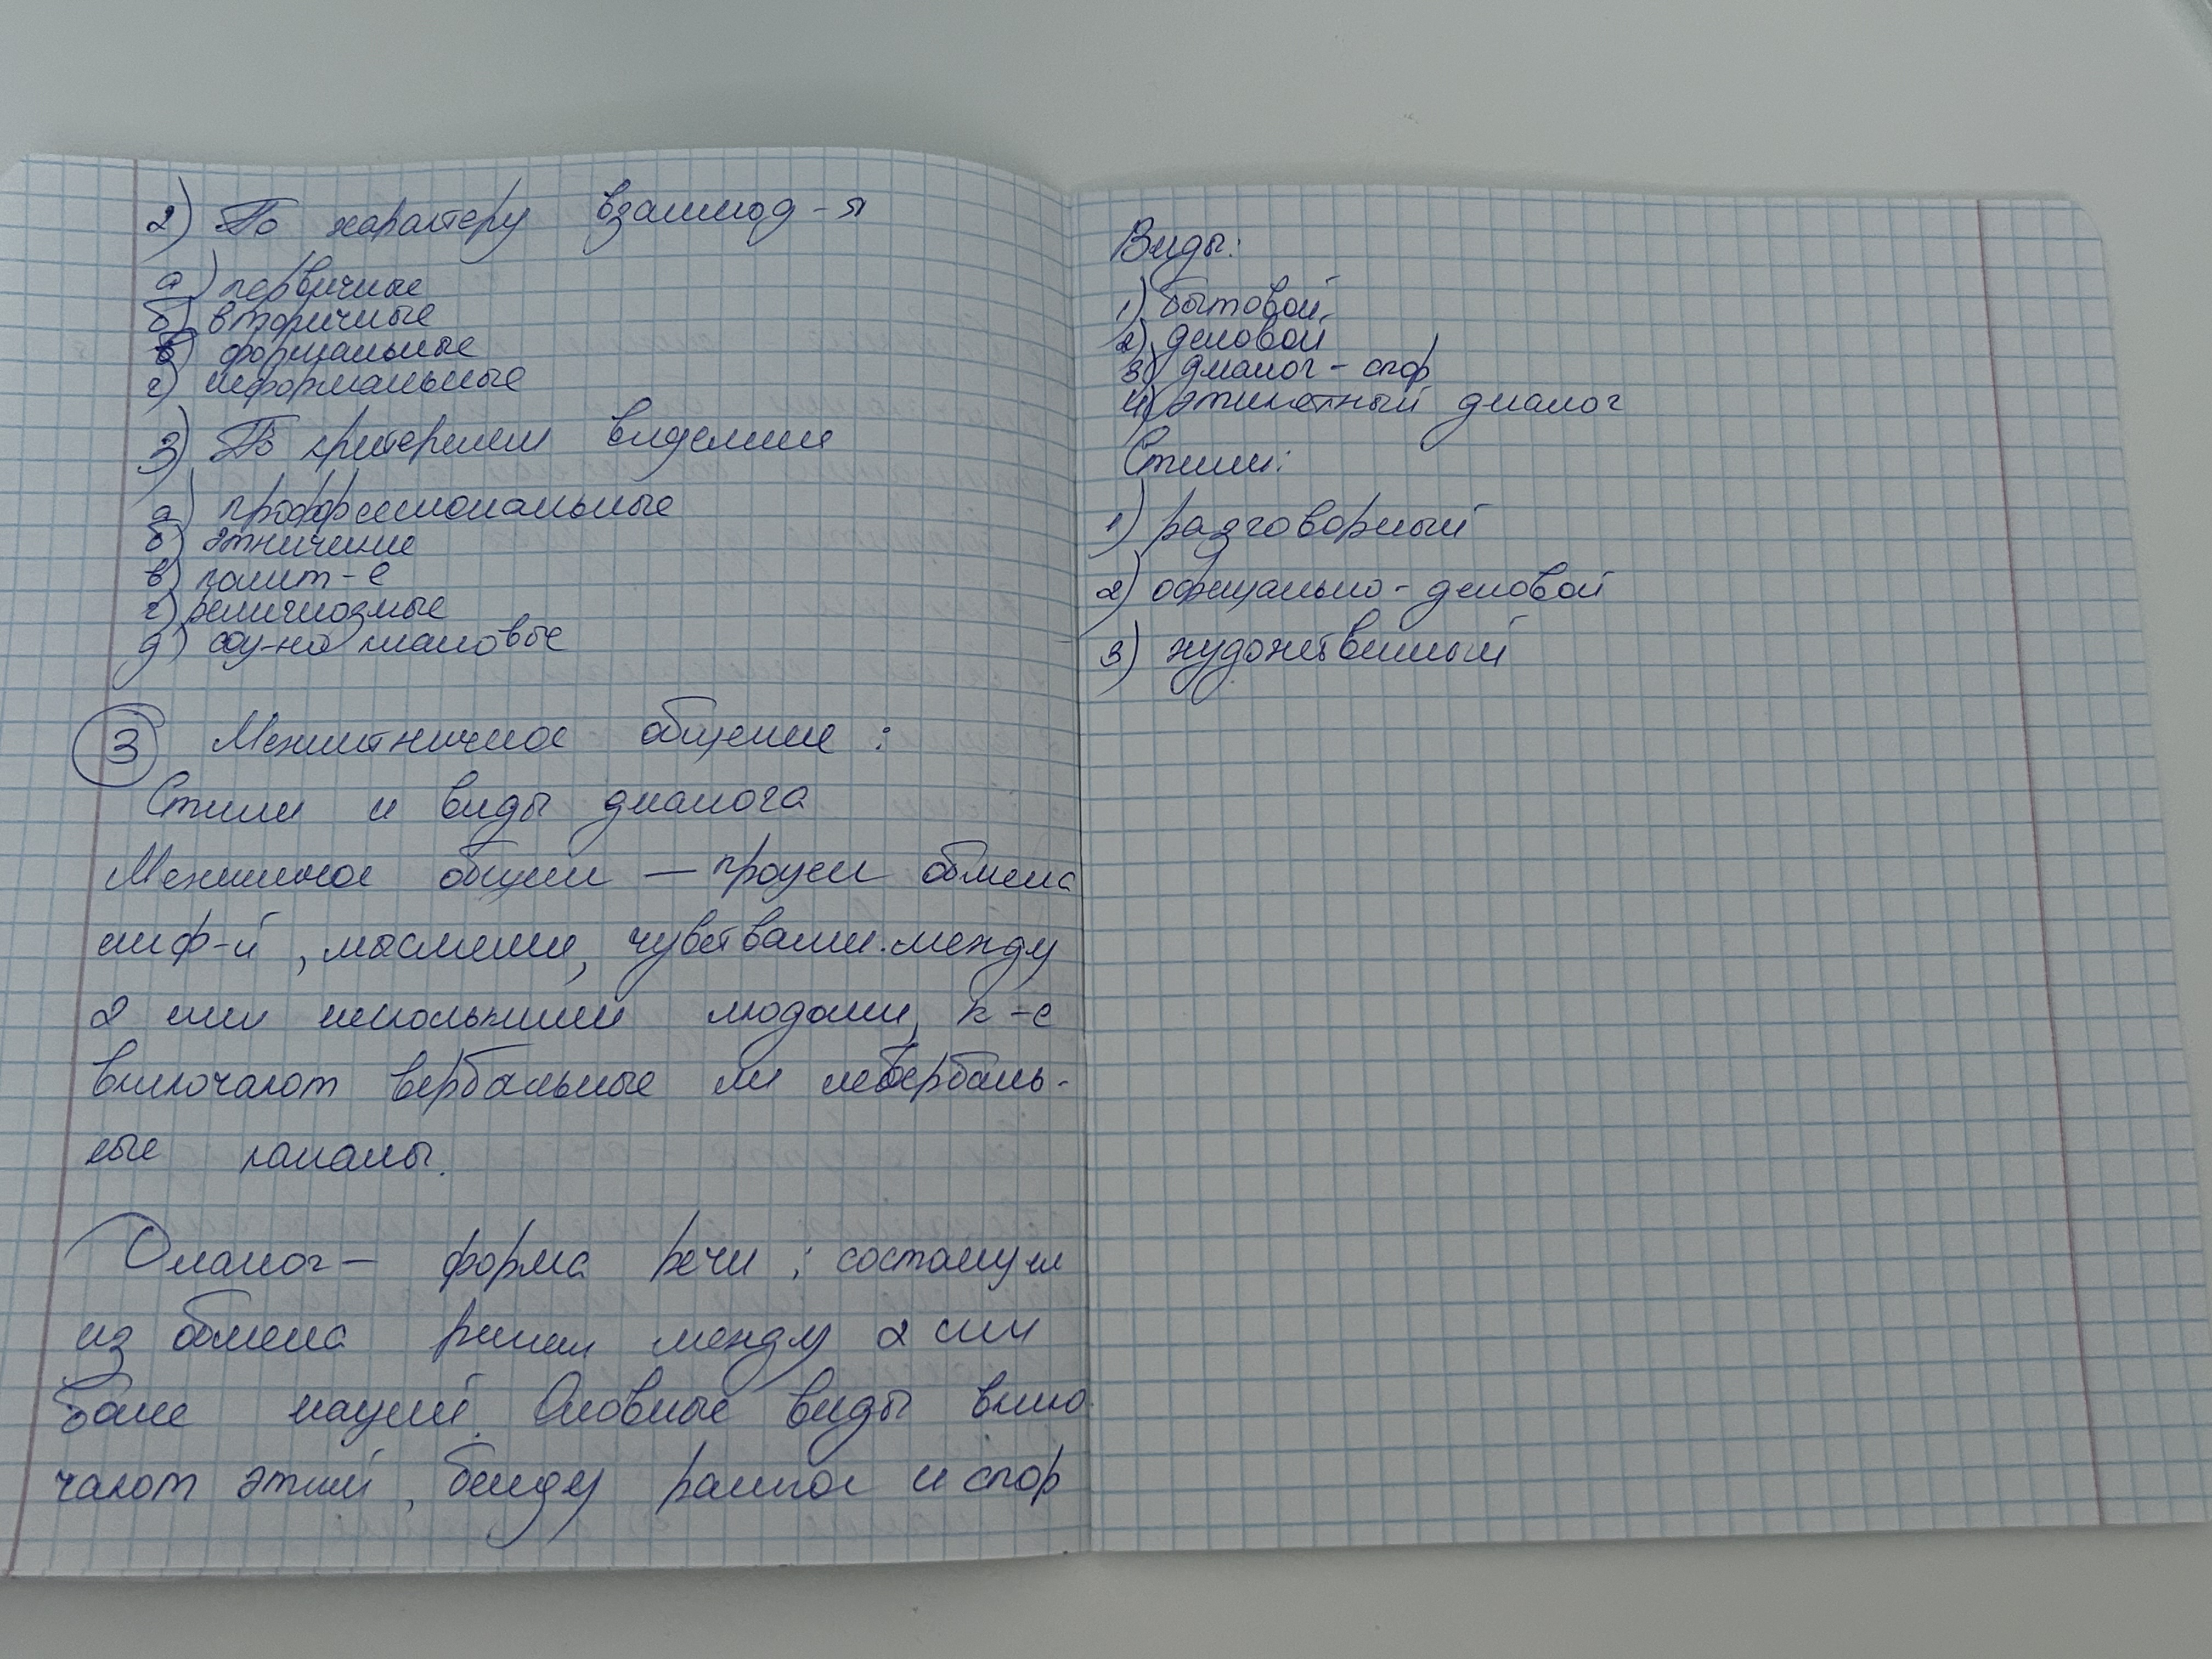 2) По характеру взаимод-я
а) первичные
б) вторичные
в) формальные
г) неформальные
3) По критериям выделения
а) проффессиональные
б) этнические
в) полит-е
г) религиозные
д) соц-но классовые
3 Межэтничное общение:
Стили и виды диалога
общен — процесс обмена
инф-й, мыслями, чувствами между
2 или несколькими людьми, к-е
включают вербальные ли невербаль-
ные каналы.
Диалог — форма речи; состоящ
из обмена между 2 или
более наций. Основные виды вклю-
чают этик, беседу и спор
Виды:
1) бытовой
2) деловой
3) диалог - спор
4) этикетный диалог
Стили:
1) разговорный
2) официально - деловой
3) художественный